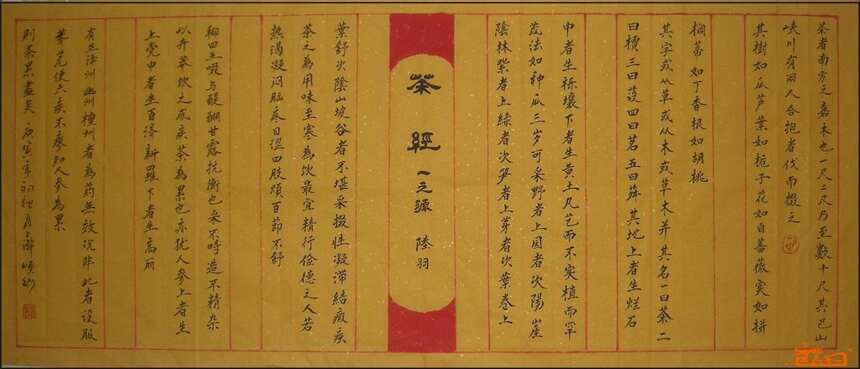 茶者南方之嘉木也一尺二尺乃至数十尺其巴山
峡川有两人合抱者伐而掇之
其树如瓜芦叶如栀子花如白蔷薇实如栟
榈蒂如丁香根如胡桃
其字或从草或从木或草木并其名一曰茶二
曰槚三曰蔎四曰茗五曰荈其地上者生烂石
中者生栎壤下者生黄土凡艺而不实植而罕
茂法如种瓜三岁可采野者上园者次阳崖
阴林紫者上绿者次笋者上芽者次叶卷上
茶經
一之源 陸羽
葉舒次陰山坡谷者不堪采掇性凝滞結瘕疾
茶之為用味至寒為飲最宜精行儉德之人若
热渴凝闷脑疼目澀四肢煩百節不舒
聊四五啜与醍醐甘露抗衡也采不時造不精杂
以卉莽飲之成疾茶為累也亦犹人参上者生
上党中者生百濟新羅下者生高丽
有生澤州幽州檀州者為药無效况非此者設服
薺苨使六疾不瘳知人参為累
則茶累盡矣